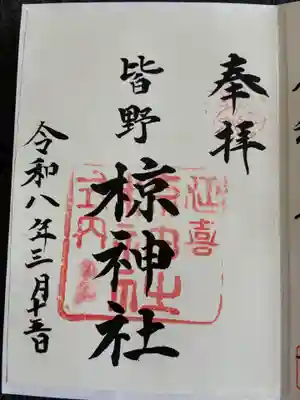 奉拝
皆野
椋神社
令和八年三月十五日
延喜
式内